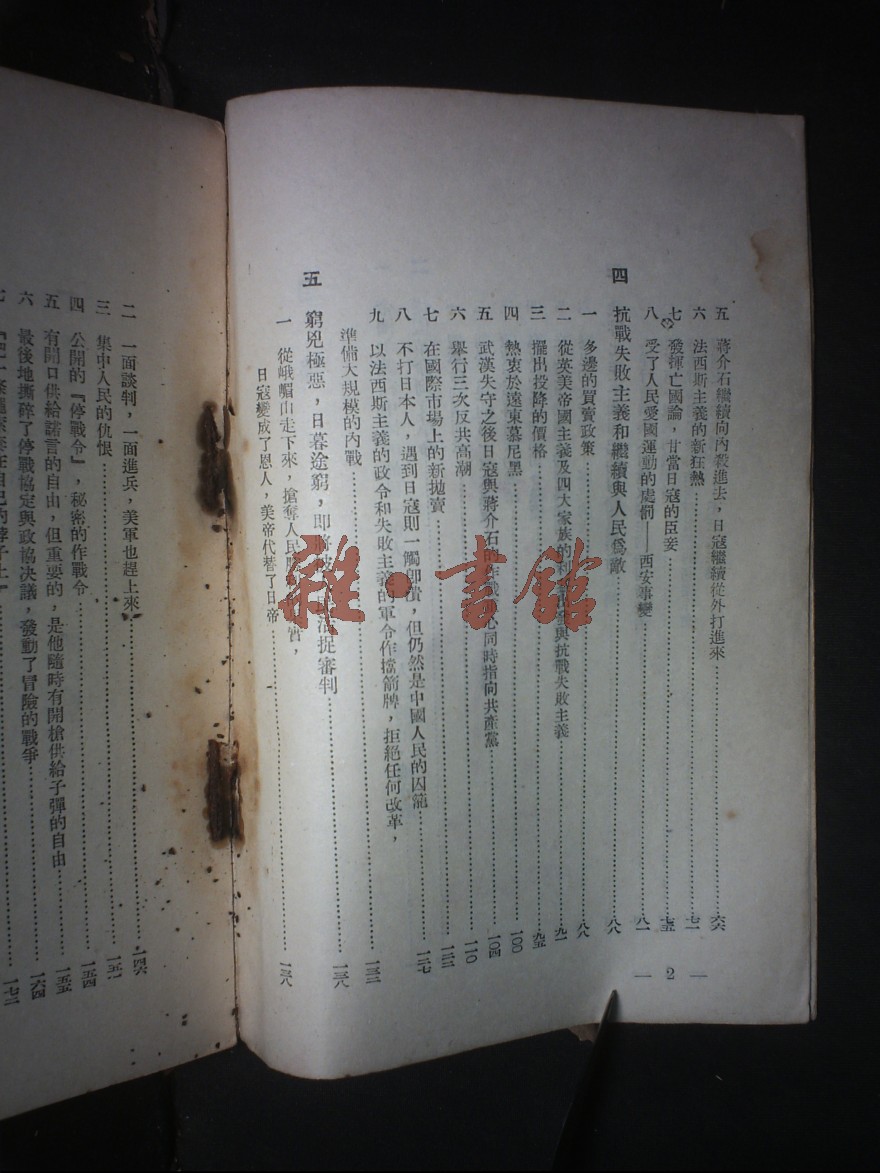 五　蔣介石繼續向內殺進去，日寇繼續從外打進來……六六
六　法西斯主義的新狂熱……七一
七　發揮亡國論，甘當日寇的臣妾……七五
八　受了人民愛國運動的處罰——西安事變……八一
四　抗戰失敗主義和繼續與人民爲敵……八八
一　多邊的買賣政策……八八
二　從英美帝國主義及四大家族的利　　與抗戰失敗主義……九一
三　擺出投降的價格……九五
四　熱衷於遠東慕尼黑……一〇〇
五　武漢失守之後日寇與蔣介石的作戰　心同時指向共產黨……一〇四
六　舉行三次反共高潮……一一〇
七　在國際市場上的新拋賣……一二二
八　不打日本人，遇到日寇則一觸即潰，但仍然是中國人民的囚籠……一二七
九　以法西斯主義的政令和失敗主義的軍令作擋箭牌，拒絕任何改革，
準備大規模的內戰……一三二
五　窮兇極惡，日暮途窮，即將被　　活捉審判……一三八
一　從峨嵋山走下來，搶奪人民勝　　實，
日寇變成了恩人，美帝代替了日帝……一三八
— 2 —
二　一面談判，一面進兵，美軍也趕上來……一四六
三　集中人民的仇恨……一五一
四　公開的『停戰令』，秘密的作戰令……一五四
五　有開口供給諾言的自由，但重要的，是他隨時有開槍供給子彈的自由……一五五
六　最後地撕碎了停戰協定與政協决議，發動了冒險的戰爭……一六四
七　　　　在自己的脖子上』……一七二
雅·書館